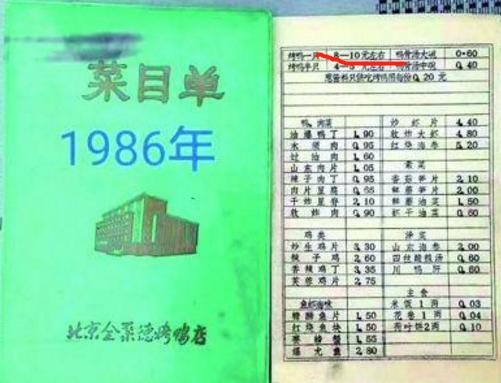 菜目单
1986年
北京全聚德烤鸭店
烤鸭一只 8—10元左右 鸭骨汤大碗 0.60
烤鸭半只 4—5元左右 鸭骨汤中碗 0.40
葱酱料只供吃烤鸭用每份0.20元
鸭、肉菜
油爆鸭丁 1.90
木须肉 0.95
过油肉 1.60
山东肉片 1.05
辣子肉丁 0.95
干炸里脊 2.10
软炸肉 0.90
鸡类
炒生鸡片 3.30
辣子鸡 2.60
香辣鸡丁 3.35
芙蓉鸡片 2.75
鱼虾海味
糟溜鱼片 1.50
红烧鱼块 1.50
1.55
2.80
炒虾片 4.40
软炸大虾 4.80
红烧海参 5.20
素菜
番茄笋片 2.10
鲜蘑笋片 2.00
鲜蘑油菜 1.50
虾干油菜 0.60
汤菜
山东海参 2.00
四丝酸辣汤 0.60
川鸭肝 0.60
主食
米饭1两 0.03
花卷1两 0.04
荷叶饼2两 0.10